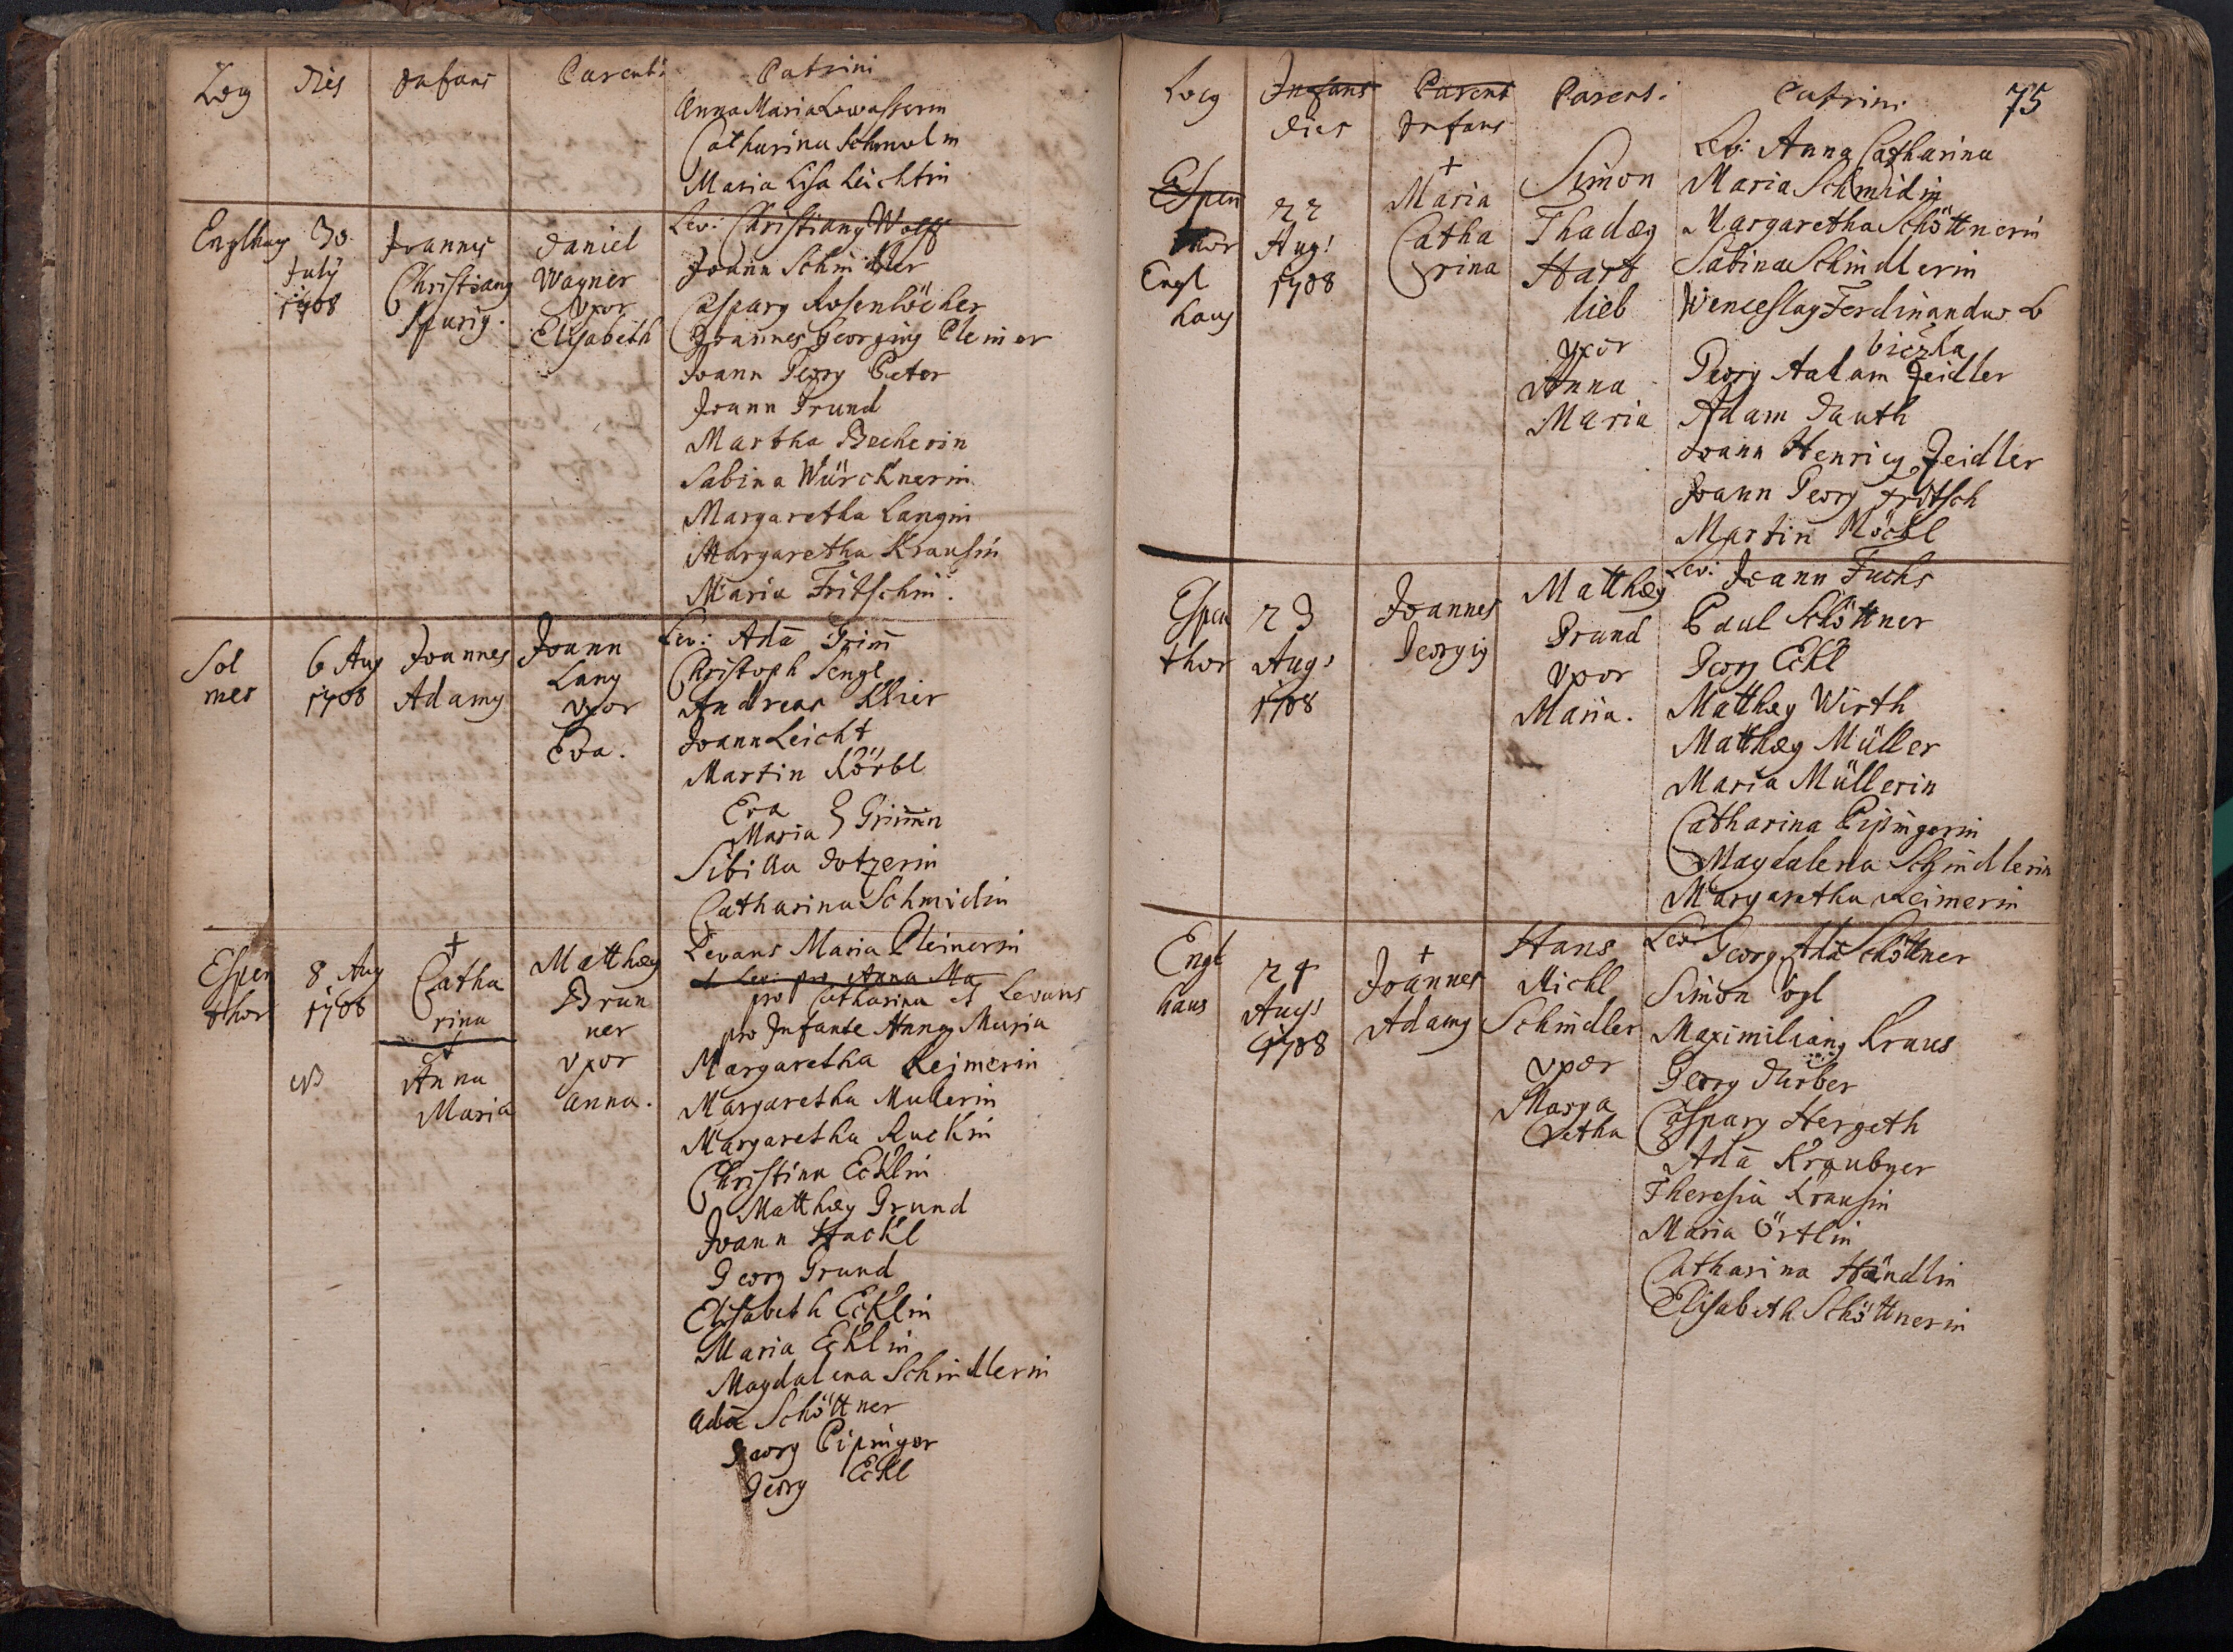 Locus dies Infans Parent: Patrini
Anna Maria
Catharina
Maria Lisa Leichtin
Englhaus 30 July 1708
Joannes Christianus Spurius.
Daniel Wagner Vxor Elisabeth
Lev: Christianus Wolff
Joann Schindler
Casparus Rosenlöcher
Joannes Georgius Pleiner
Joann Georg Peter
Joann Grund
Martha Becherin
Sabina Würcknerin
Margaretha Langin
Margaretha Krausin
Maria Fritschin.
Sol mes
6 Aug 1708
Joannes Adamus
Joann Lang vxor Eva.
Lev: Adā Grim̄
Christoph Sengl
Andreas Klier
Joann Leicht
Martin Körbl
Eva
Maria } Grim̄in
Sibilla Dotzerin
Catharina Schmidin
Espen thor
8 Aug 1708
NB
† Catha rina
et
Anna Maria
Matthæus Brun ner vxor Anna.
Levans Maria Pleinerin
et Lev: pro Anna Ma
pro Catharina et Levans
pro Infante Anna Maria
Margaretha Reimerin
Margaretha Mullerin
Margaretha Ruckin
Christina Ecklin
Matthæus Grund
Joann Hackl
Georg Grund
Elisabeth Ecklin
Maria Ecklin
Magdalena Schindlerin
Adā Schöttner
Georg Pipinger
Georg Eckl
Locus Infans Parent Parent: Patrini 75
dies Infans
Espen thor
Engl haus
22 Aug: 1708
† Maria Catha rina
Simon Thadæus Hart lieb vxor Anna Maria
Lev: Anna Catharina
Maria Schmidin
Margaretha Schöttnerin
Sabina Schindlerin
Wenceslaus Ferdinandus L
biczka
Georg Adam Zeidler
Adam Dauth
Joann Henricus Zeidler
Joann Georg Fritsch
Martin Möckl
Espen thor
23 Aug: 1708
Joannes Georgius
Matthæus Grund vxor Maria.
Lev: Joann Fuchs
Paul Schöttner
Georg Eckl
Matthæus Wirth
Matthæus Müller
Maria Müllerin
Catharina Pipingerin
Magdalena Schindlerin
Margaretha Reimerin
Engl haus
24 Aug: 1708
† Joannes Adamus
Hans Michl Schindler vxor Marga retha
Lev: Georg Adā Schöttner
Simon Vogl
Maximilianus Kraus
Georg Türber
Casparus Hergeth
Adā Kraubner
Theresia Krausin
Maria Örtlin
Catharina Händlin
Elisabeth Schöttnerin